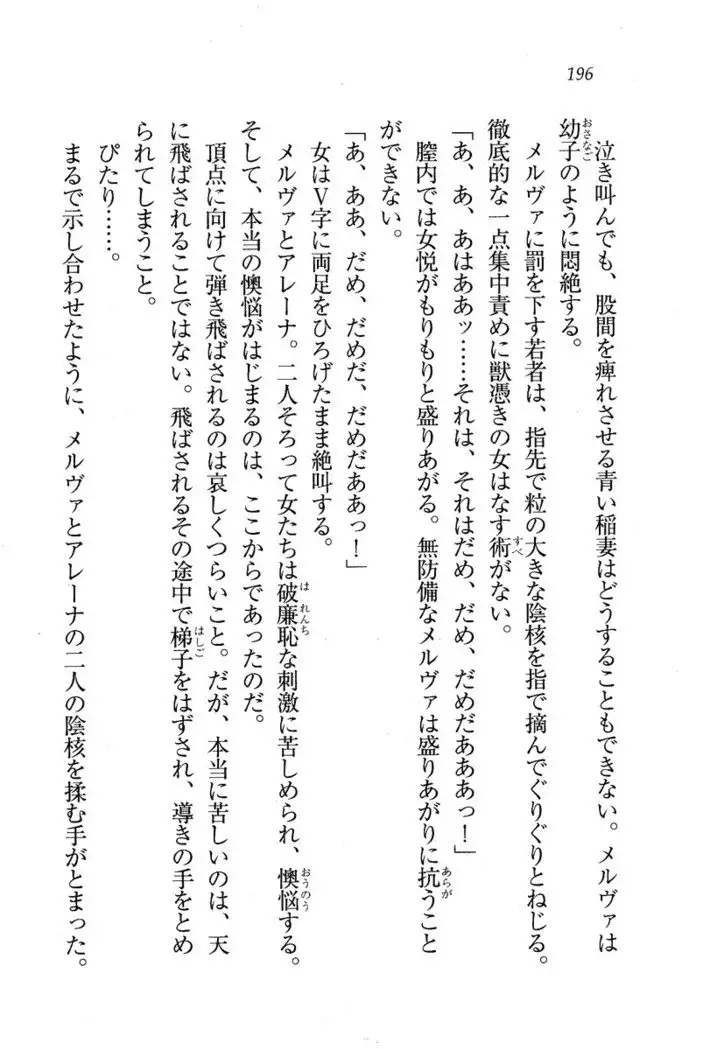 196
泣き叫んでも、股間を痺れさせる青い稲妻はどうすることもできない。メルヴァは
おさなご
幼子のように悶絶する。
メルヴァに罰を下す若者は、指先で粒の大きな陰核を指で摘んでぐりぐりとねじる。
すべ
徹底的な一点集中責めに獣憑きの女はなす術がない。
「あ、あ、あはああッ……それは、それはだめ、だめ、だめだあああっ！」
あらが
膣内では女悦がもりもりと盛りあがる。無防備なメルヴァは盛りあがりに抗うこと
ができない。
「あ、ああ、だめ、だめだ、だめだああっ！」
女はV字に両足をひろげたまま絶叫する。
はれんち
おうのう
メルヴァとアレーナ。二人そろって女たちは破廉恥な刺激に苦しめられ、懊悩する。
そして、本当の懊悩がはじまるのは、ここからであったのだ。
頂点に向けて弾き飛ばされるのは哀しくつらいこと。だが、本当に苦しいのは、天
はしご
に飛ばされることではない。飛ばされるその途中で梯子をはずされ、導きの手をとめ
られてしまうこと。
ぴたり……。
まるで示し合わせたように、メルヴァとアレーナの二人の陰核を揉む手がとまった。